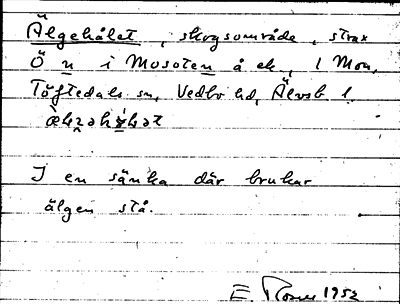 Älgehålet, skogsområde, strax
Ö n i Mosoten å ek, 1 Mon,
Töftedals sn, Vedbo hd, Älvsb l.
I en sänka där brukar
älgen stå.
E. 1952